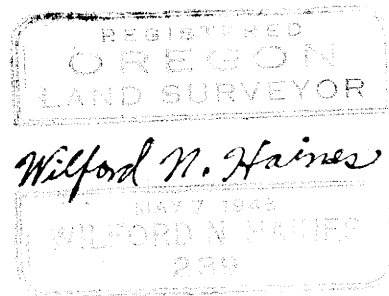 REGISTERED
OREGON
LAND SURVEYOR
Wilford N. Haines
MAY 7 1948
WILFORD N HAINES